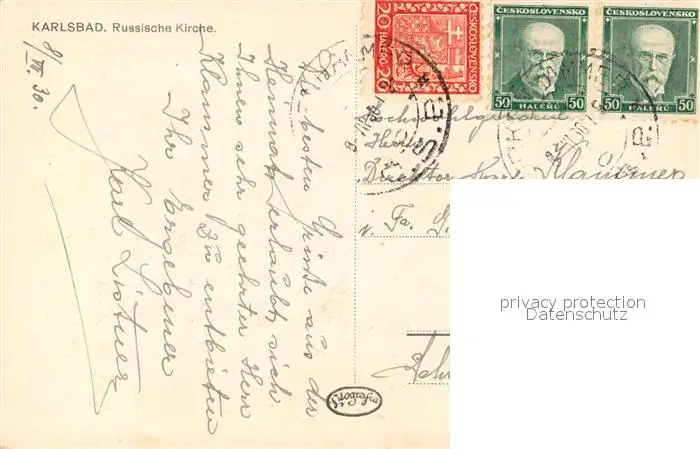 KARLSBAD. Russische Kirche.
8/VI. 30.
Die besten Grüße aus der
Heimat erlaubt sich
Ihnen sehr geehrter Herr
Klammer zu entbieten
Ihr Ergebener
Karl
ČESKOSLOVENSKO
20 HALÉRŮ 20
ČESKOSLOVENSKO
50 HALÉŘŮ 50
ČESKOSLOVENSKO
50 HALÉŘŮ 50
Herrn
Klammer
i. Fa. G.
privacy protection
Datenschutz